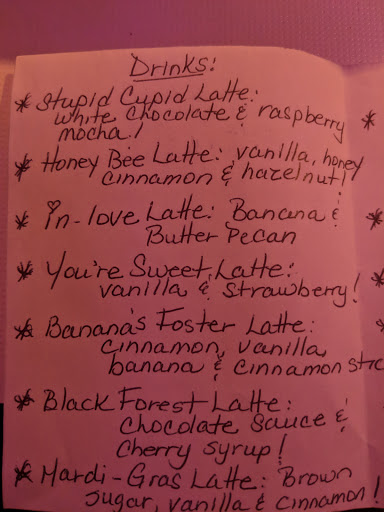 Drinks:
* Stupid Cupid Latte:
white chocolate & raspberry
mocha!
* Honey Bee Latte: vanilla, honey
cinnamon & hazelnut!
* In-love Latte: Banana &
Butter Pecan
* You're Sweet Latte:
vanilla & strawberry!
* Banana's Foster Latte:
cinnamon, vanilla,
banana & cinnamon stic
* Black Forest Latte:
chocolate sauce &
cherry syrup!
* Mardi-Gras Latte: Brown
sugar, vanilla & cinnamon!